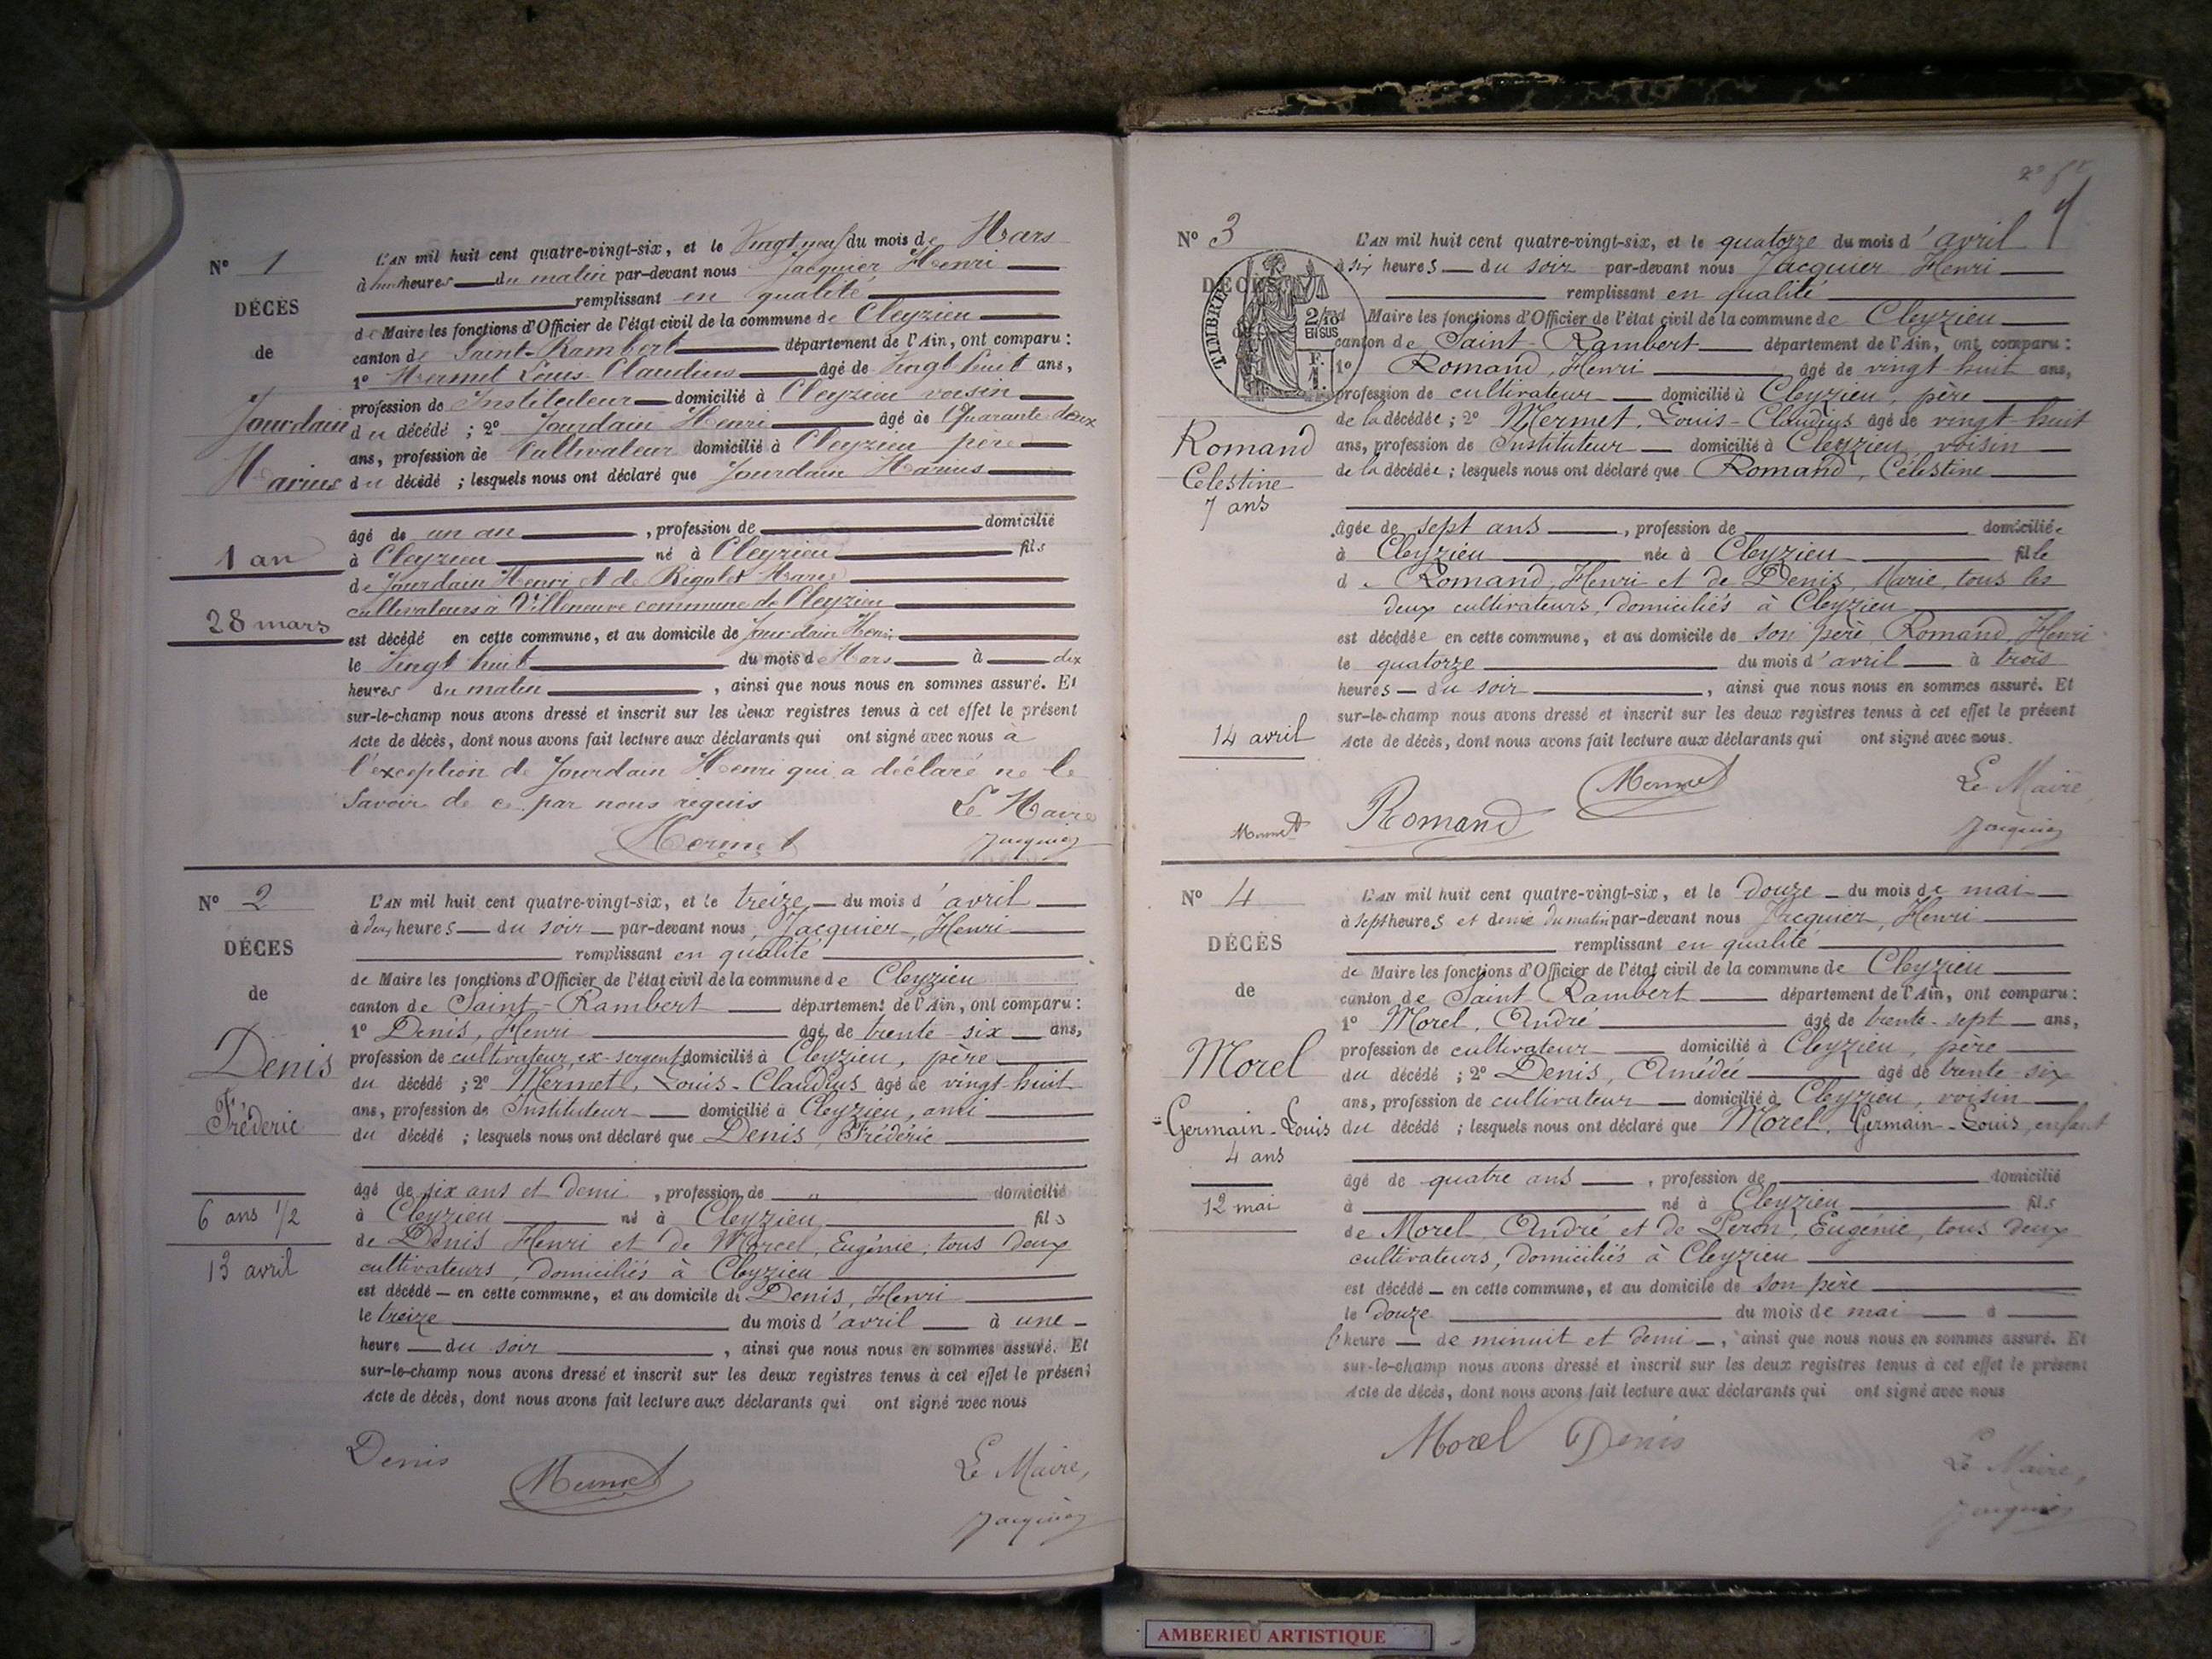 N° 1
DÉCÈS
de
Jourdain
Marius
1 an
28 mars
L'AN mil huit cent quatre-vingt-six, et le Vingt neuf du mois de Mars
à huit heures du matin par-devant nous Jacquier Henri
remplissant en qualité
de Maire les fonctions d'Officier de l'état civil de la commune de Cleyzieu
canton de Saint-Rambert département de l'Ain, ont comparu :
1° Mermet Louis Claudius âgé de Vingt huit ans,
profession de Instituteur domicilié à Cleyzieu voisin
du décédé ; 2° Jourdain Henri âgé de Quarante deux
ans, profession de Cultivateur domicilié à Cleyzieu père
du décédé ; lesquels nous ont déclaré que Jourdain Marius
âgé de un an , profession de domicilié
à Cleyzieu né à Cleyzieu fils
de Jourdain Henri et de Rigolet Marie
cultivateurs à Villeneuve commune de Cleyzieu
est décédé en cette commune, et au domicile de Jourdain Henri
le Vingt huit du mois de Mars à dix
heures du matin , ainsi que nous nous en sommes assuré. Et
sur-le-champ nous avons dressé et inscrit sur les deux registres tenus à cet effet le présent
Acte de décès, dont nous avons fait lecture aux déclarants qui ont signé avec nous à
l'exception de Jourdain Henri qui a déclaré ne le
savoir de ce par nous requis
Le Maire
Mermet
Jacquier
N° 2
DÉCES
de
Denis
Fréderic
6 ans 1/2
13 avril
L'AN mil huit cent quatre-vingt-six, et le treize du mois d'avril
à deux heures du soir par-devant nous, Jacquier, Henri
remplissant en qualité
de Maire les fonctions d'Officier de l'état civil de la commune de Cleyzieu
canton de Saint-Rambert département de l'Ain, ont comparu :
1° Denis, Henri âgé de trente-six ans,
profession de cultivateur, ex-sergent domicilié à Cleyzieu, père
du décédé ; 2° Mermet, Louis-Claudius âgé de vingt-huit
ans, profession de Instituteur domicilié à Cleyzieu, ami
du décédé ; lesquels nous ont déclaré que Denis, Frédéric
âgé de six ans et demi , profession de " domicilié
à Cleyzieu né à Cleyzieu fils
de Denis Henri et de Morcel, Eugénie, tous deux
cultivateurs, domiciliés à Cleyzieu
est décédé en cette commune, et au domicile de Denis, Henri
le treize du mois d'avril à une
heure du soir , ainsi que nous nous en sommes assuré. Et
sur-le-champ nous avons dressé et inscrit sur les deux registres tenus à cet effet le présent
Acte de décès, dont nous avons fait lecture aux déclarants qui ont signé avec nous
Denis
Mermet
Le Maire,
Jacquier
N° 3
DÉCÈS
TIMBRE
2/10
EN SUS
Romand
Célestine
7 ans
14 avril
Mermet
L'AN mil huit cent quatre-vingt-six, et le quatorze du mois d'avril
à six heures du soir par-devant nous Jacquier Henri
remplissant en qualité
Maire les fonctions d'Officier de l'état civil de la commune de Cleyzieu
canton de Saint-Rambert département de l'Ain, ont comparu :
1° Romand, Henri âgé de vingt huit ans,
profession de cultivateur domicilié à Cleyzieu, père
de la décédée ; 2° Mermet, Louis-Claudius âgé de vingt-huit
ans, profession de Instituteur domicilié à Cleyzieu, voisin
de la décédée ; lesquels nous ont déclaré que Romand, Célestine
âgée de sept ans , profession de domiciliée
à Cleyzieu née à Cleyzieu fille
de Romand, Henri et de Denis, Marie, tous les
deux cultivateurs, domiciliés à Cleyzieu
est décédée en cette commune, et au domicile de son père Romand, Henri
le quatorze du mois d'avril à trois
heures du soir , ainsi que nous nous en sommes assuré. Et
sur-le-champ nous avons dressé et inscrit sur les deux registres tenus à cet effet le présent
Acte de décès, dont nous avons fait lecture aux déclarants qui ont signé avec nous.
Mermet
Le Maire,
Romand
Jacquier
N° 4
DÉCÈS
de
Morel
Germain-Louis
4 ans
12 mai
L'AN mil huit cent quatre-vingt-six, et le douze du mois de mai
à sept heures et demie du matin par-devant nous Jacquier, Henri
remplissant en qualité
de Maire les fonctions d'Officier de l'état civil de la commune de Cleyzieu
canton de Saint Rambert département de l'Ain, ont comparu :
1° Morel, André âgé de trente-sept ans,
profession de cultivateur domicilié à Cleyzieu, père
du décédé ; 2° Denis, Amédée âgé de trente-six
ans, profession de cultivateur domicilié à Cleyzieu, voisin
du décédé ; lesquels nous ont déclaré que Morel, Germain-Louis, enfant
âgé de quatre ans , profession de domicilié
à né à Cleyzieu fils
de Morel, André et de Peron, Eugénie, tous deux
cultivateurs, domiciliés à Cleyzieu
est décédé en cette commune, et au domicile de son père
le douze du mois de mai à
l'heure de minuit et demi , ainsi que nous nous en sommes assuré. Et
sur-le-champ nous avons dressé et inscrit sur les deux registres tenus à cet effet le présent
Acte de décès, dont nous avons fait lecture aux déclarants qui ont signé avec nous
Morel Denis
Le Maire,
Jacquier
AMBERIEU ARTISTIQUE